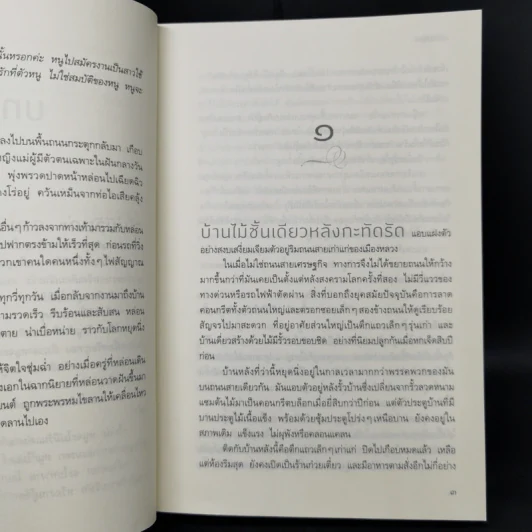 นั้นหรอกค่ะ หนูไปสมัครงานเป็นสาวใช้
รักที่ตัวหนู ไม่ใช่สมบัติของหนู หนูจะ
ลงไปบนพื้นถนนกระดุกกลับมา เกือบ
หญิงแม่ผู้มีตัวตนเฉพาะในฝันกลางวัน
พุ่งพรวดปาดหน้าหล่อนไปเฉียดฉิว
โร่อยู่ ควันเหม็นจากท่อไอเสียคลุ้ง
อื่นๆ ก้าวลงจากทางเท้ามาร่วมกับหล่อน
ไปฟากตรงข้ามให้เร็วที่สุด ก่อนรถที่วิ่ง
วกเขาคนใดคนหนึ่งทั้งๆ ไฟสัญญาณ
ทุกวี่ทุกวัน เมื่อกลับจากงานมาถึงบ้าน
ามรวดเร็ว รีบร้อนและสับสน หล่อน
ตาย น่าเบื่อหน่าย ราวกับโลกหยุดนิ่ง
ห้จิตใจชุ่มฉ่ำ อย่างเมื่อครู่ที่หล่อนเดิน
งเอกในฉากนิยายที่หล่อนวาดฝันขึ้นมา
ยนต์ ถูกพระพรหมไขลานให้เคลื่อนไหว
ตลานไปเอง
๑
บ้านไม้ชั้นเดียวหลังกะทัดรัด แอบแฝงตัว
อย่างสงบเสงี่ยมเจียมตัวอยู่ริมถนนสายเก่าแก่ของเมืองหลวง
ในเมื่อไม่ใช่ถนนสายเศรษฐกิจ ทางการจึงไม่ได้ขยายถนนให้กว้าง
มากขึ้นกว่าที่มันเคยเป็นตั้งแต่หลังสงครามโลกครั้งที่สอง ไม่มีวี่แววของ
ทางด่วนหรือรถไฟฟ้าตัดผ่าน สิ่งที่บอกถึงยุคสมัยปัจจุบันคือการลาด
คอนกรีตทั้งตัวถนนใหญ่และตรอกซอยเล็กๆ สองข้างถนนให้ดูเรียบร้อย
สัญจรไปมาสะดวก ที่อยู่อาศัยส่วนใหญ่เป็นตึกแถวเล็กๆ รุ่นเก่า และ
บ้านเดี่ยวสร้างด้วยไม้มีรั้วรอบขอบชิด อย่างที่นิยมปลูกกันเมื่อหกเจ็ดสิบปี
ก่อน
บ้านหลังที่ว่านี้หยุดนิ่งอยู่ในกาลเวลามากกว่าพรรคพวกของมัน
บนถนนสายเดียวกัน มันแอบตัวอยู่หลังรั้วบ้านซึ่งเปลี่ยนจากรั้วลวดหนาม
แซมต้นไม้มาเป็นคอนกรีตบล็อกเมื่อยี่สิบกว่าปีก่อน แต่ตัวประตูบ้านที่มี
บานประตูไม้เนื้อแข็ง พร้อมด้วยซุ้มประตูโปร่งๆ เหนือบาน ยังคงอยู่ใน
สภาพเดิม แข็งแรง ไม่ผุพังหรือคลอนแคลน
ติดกับบ้านหลังนี้คือตึกแถวเล็กๆ เก่าแก่ ปิดไปเกือบหมดแล้ว เหลือ
แต่ห้องริมสุด ยังคงเปิดเป็นร้านก๋วยเตี๋ยว และมีอาหารตามสั่งอีกไม่กี่อย่าง
๓